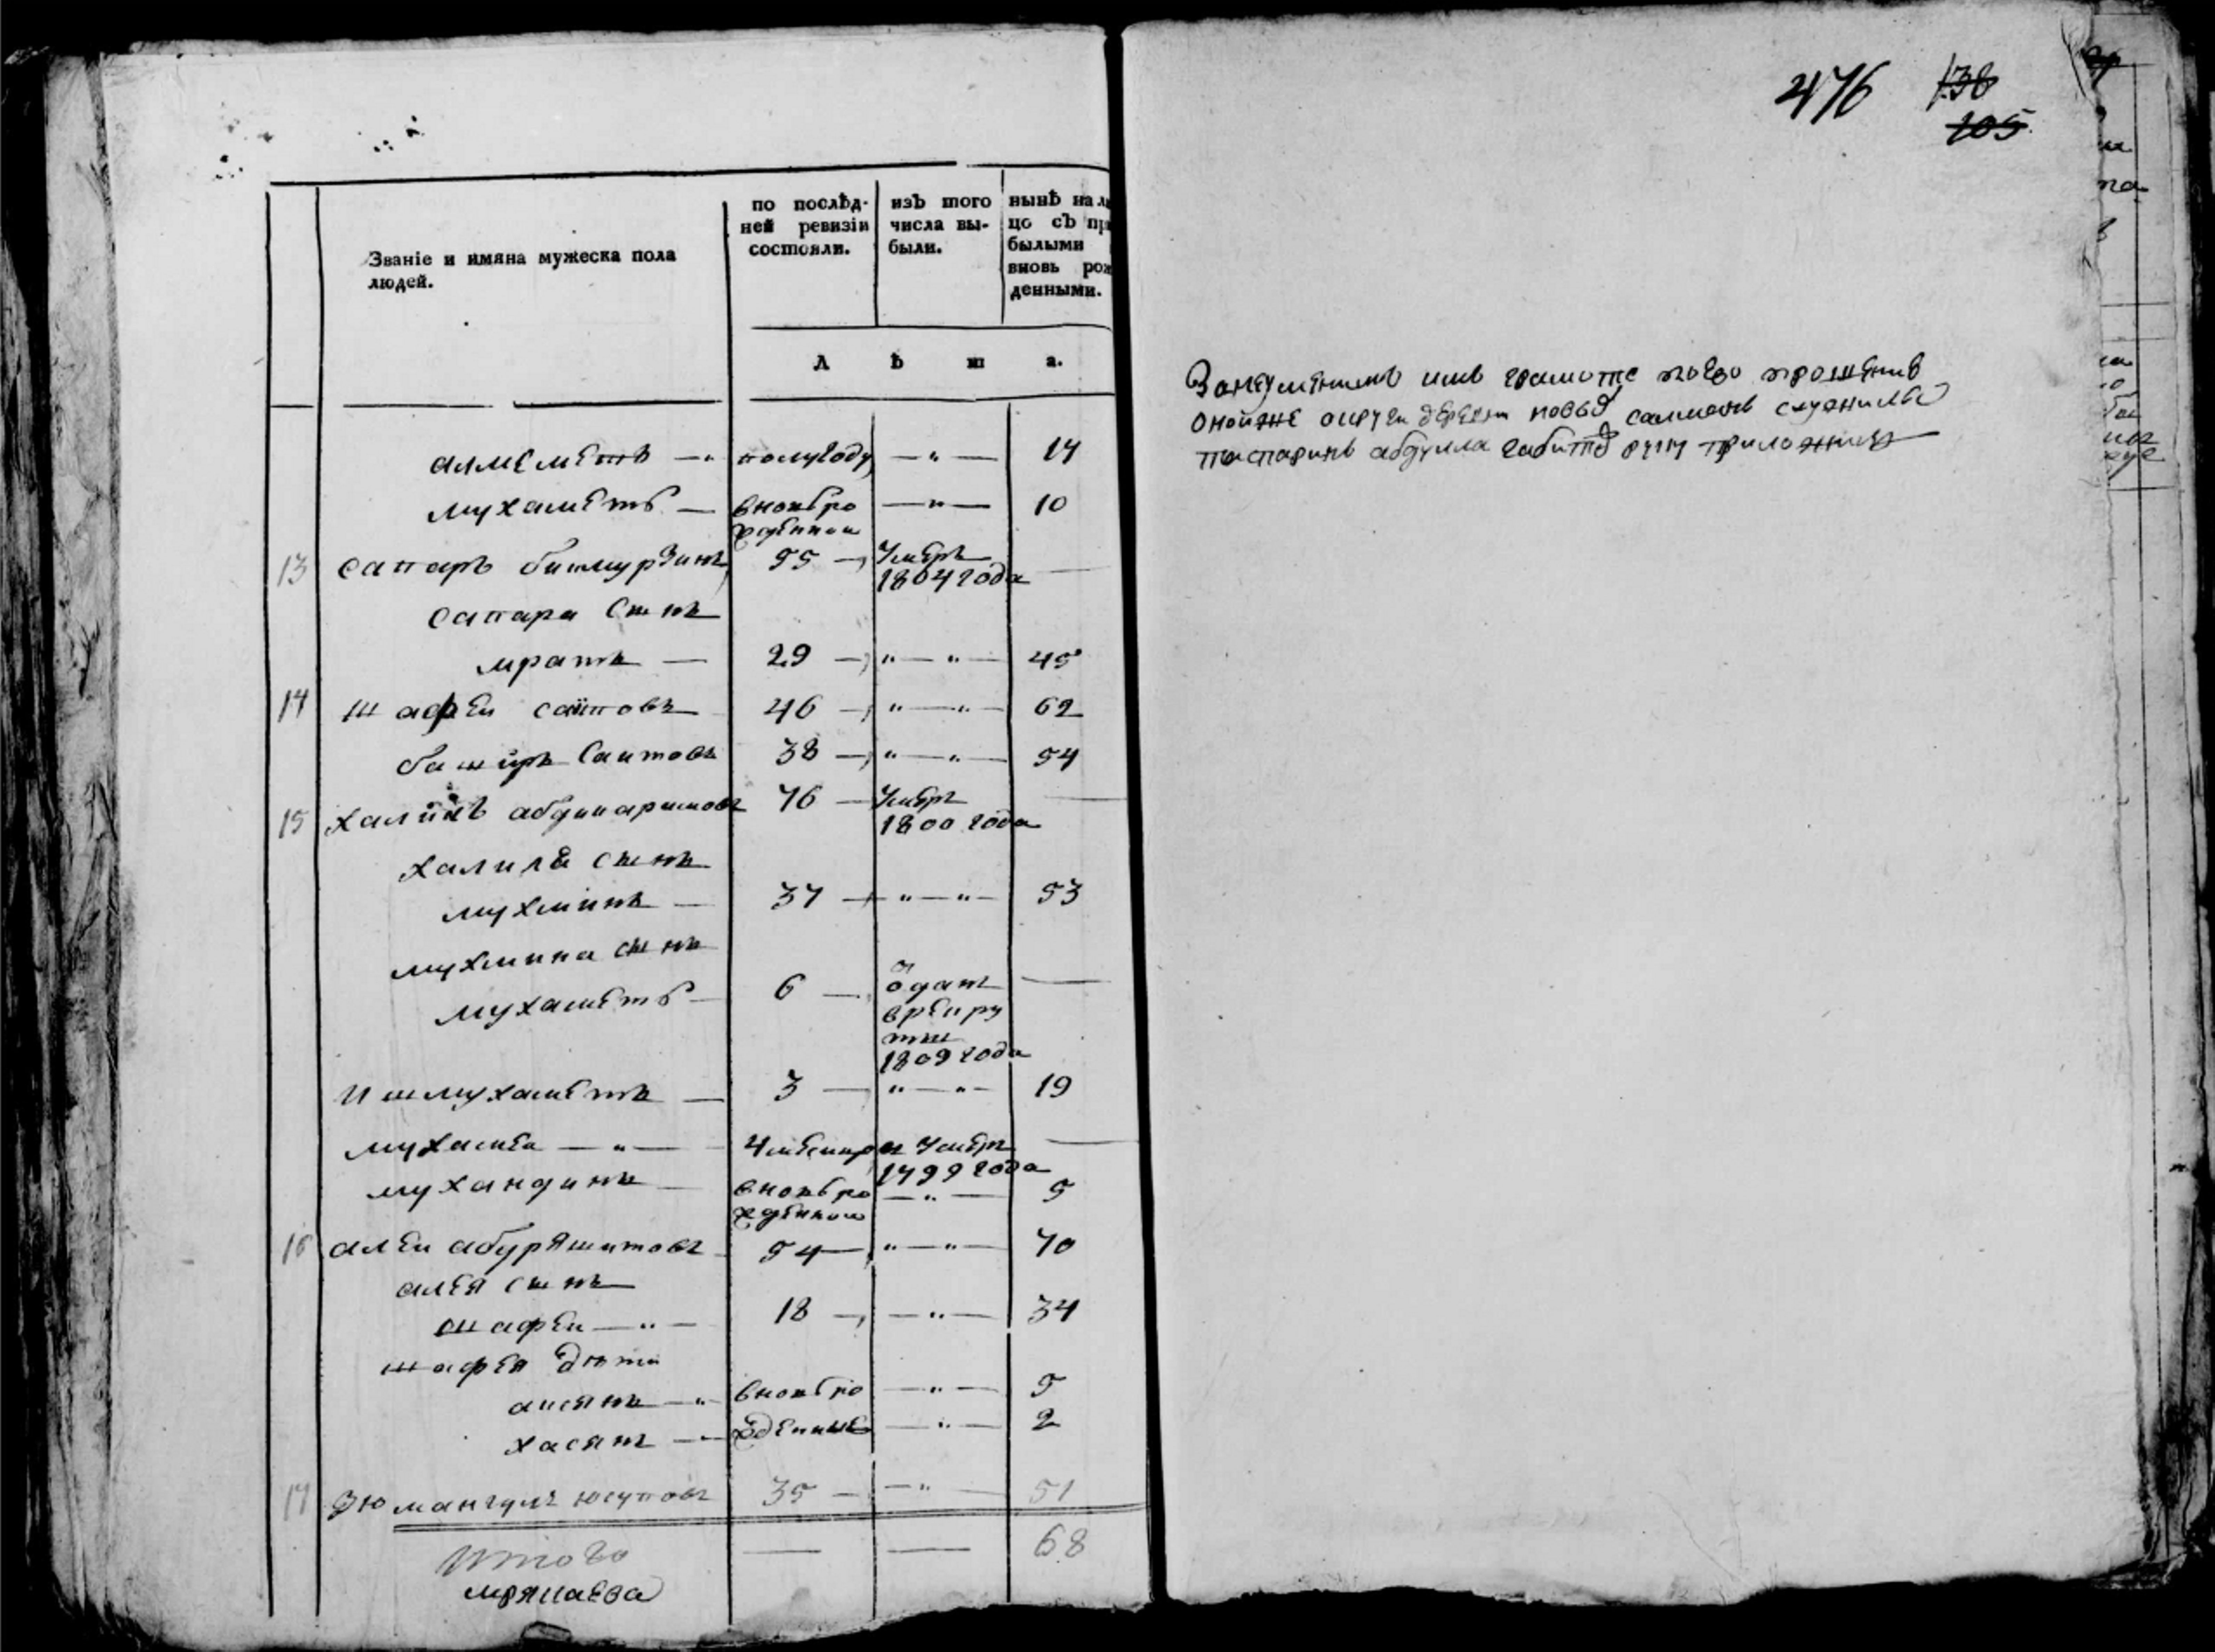 476 138
105
Званіе и имяна мужеска пола
людей.
по послѣд-
ней ревизіи
состояли.
изъ того
числа вы-
были.
нынѣ на ли
цо съ при
былыми
вновь рож
денными.
Л ѣ т а.
алмеметъ — " полугоду — " — 14
мухаметъ — вновьро — " — 10
жденной
13 сапаръ бикмурзинъ 55 — умеръ
1804 года —
сапара сынъ
мратъ — 29 — " — " — 45
14 шафеи саитовъ 46 — " — " — 62
баширъ саитовъ 38 — " — " — 54
15 халилъ абдикаримовъ 76 — умеръ —
1800 года
халиля сынъ
мухминъ — 37 — " — " — 53
мухмина сынъ
мухаметъ — 6 — оданъ —
врекру
ты
1809 года
ишмухаметъ — 3 — " — " — 19
мухамеи — " — умеръ —
1799 года
мухандинъ — вновьро — " — 5
жденной
16 алеи абдряшитовъ 54 — " — " — 70
алея сынъ
шафеи — " — 18 — — " — 34
шафея дѣти
аисянъ — " вновьро — " — 5
хасянъ — жденные — " — 2
17 Зюмангулъ юсуповъ 35 — — " — 51
Итого — — 68
мряшаева
онойже округи деревни новыхъ служилый
татаринъ абдулла габитовъ руку приложилъ